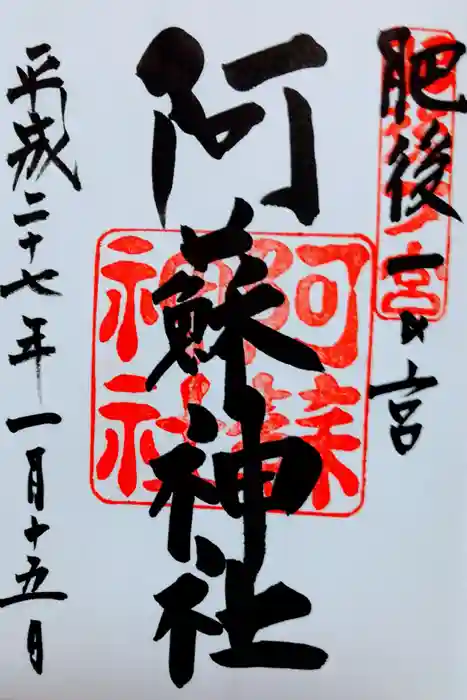 肥後一の宮
阿蘇神社
平成二十七年一月十五日
阿蘇
神社